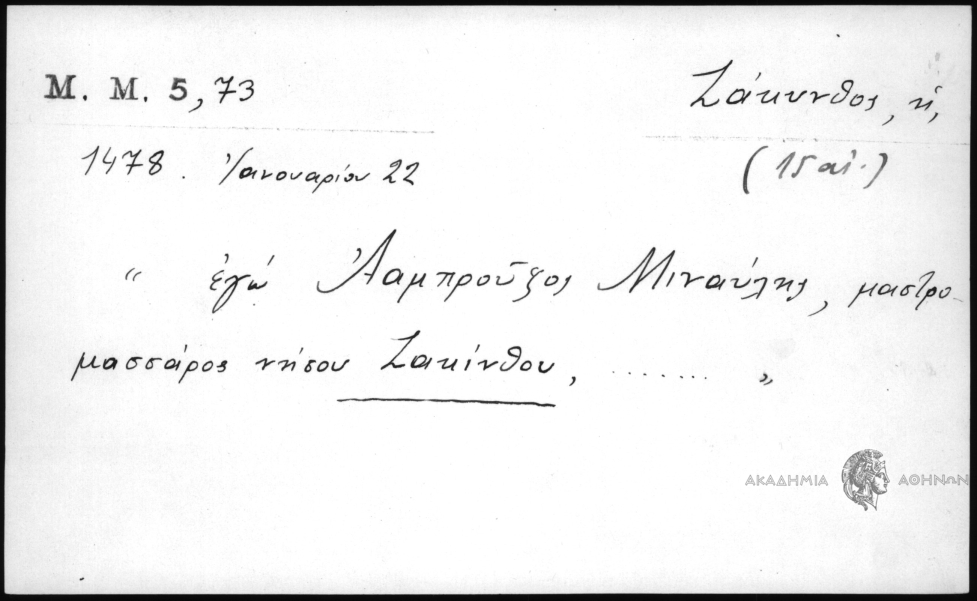 Μ. Μ. 5, 73
Ζάκυνθος, ἡ,
1478. Ἰανουαρίου 22
(15 αἰ.)
“ ἐγώ Λαμπροῦζος Μιναύλης, μαστρο-
μασσάρος νήσου Ζακίνθου, ........ ”
ΑΚΑΔΗΜΙΑ ΑΘΗΝΩΝ